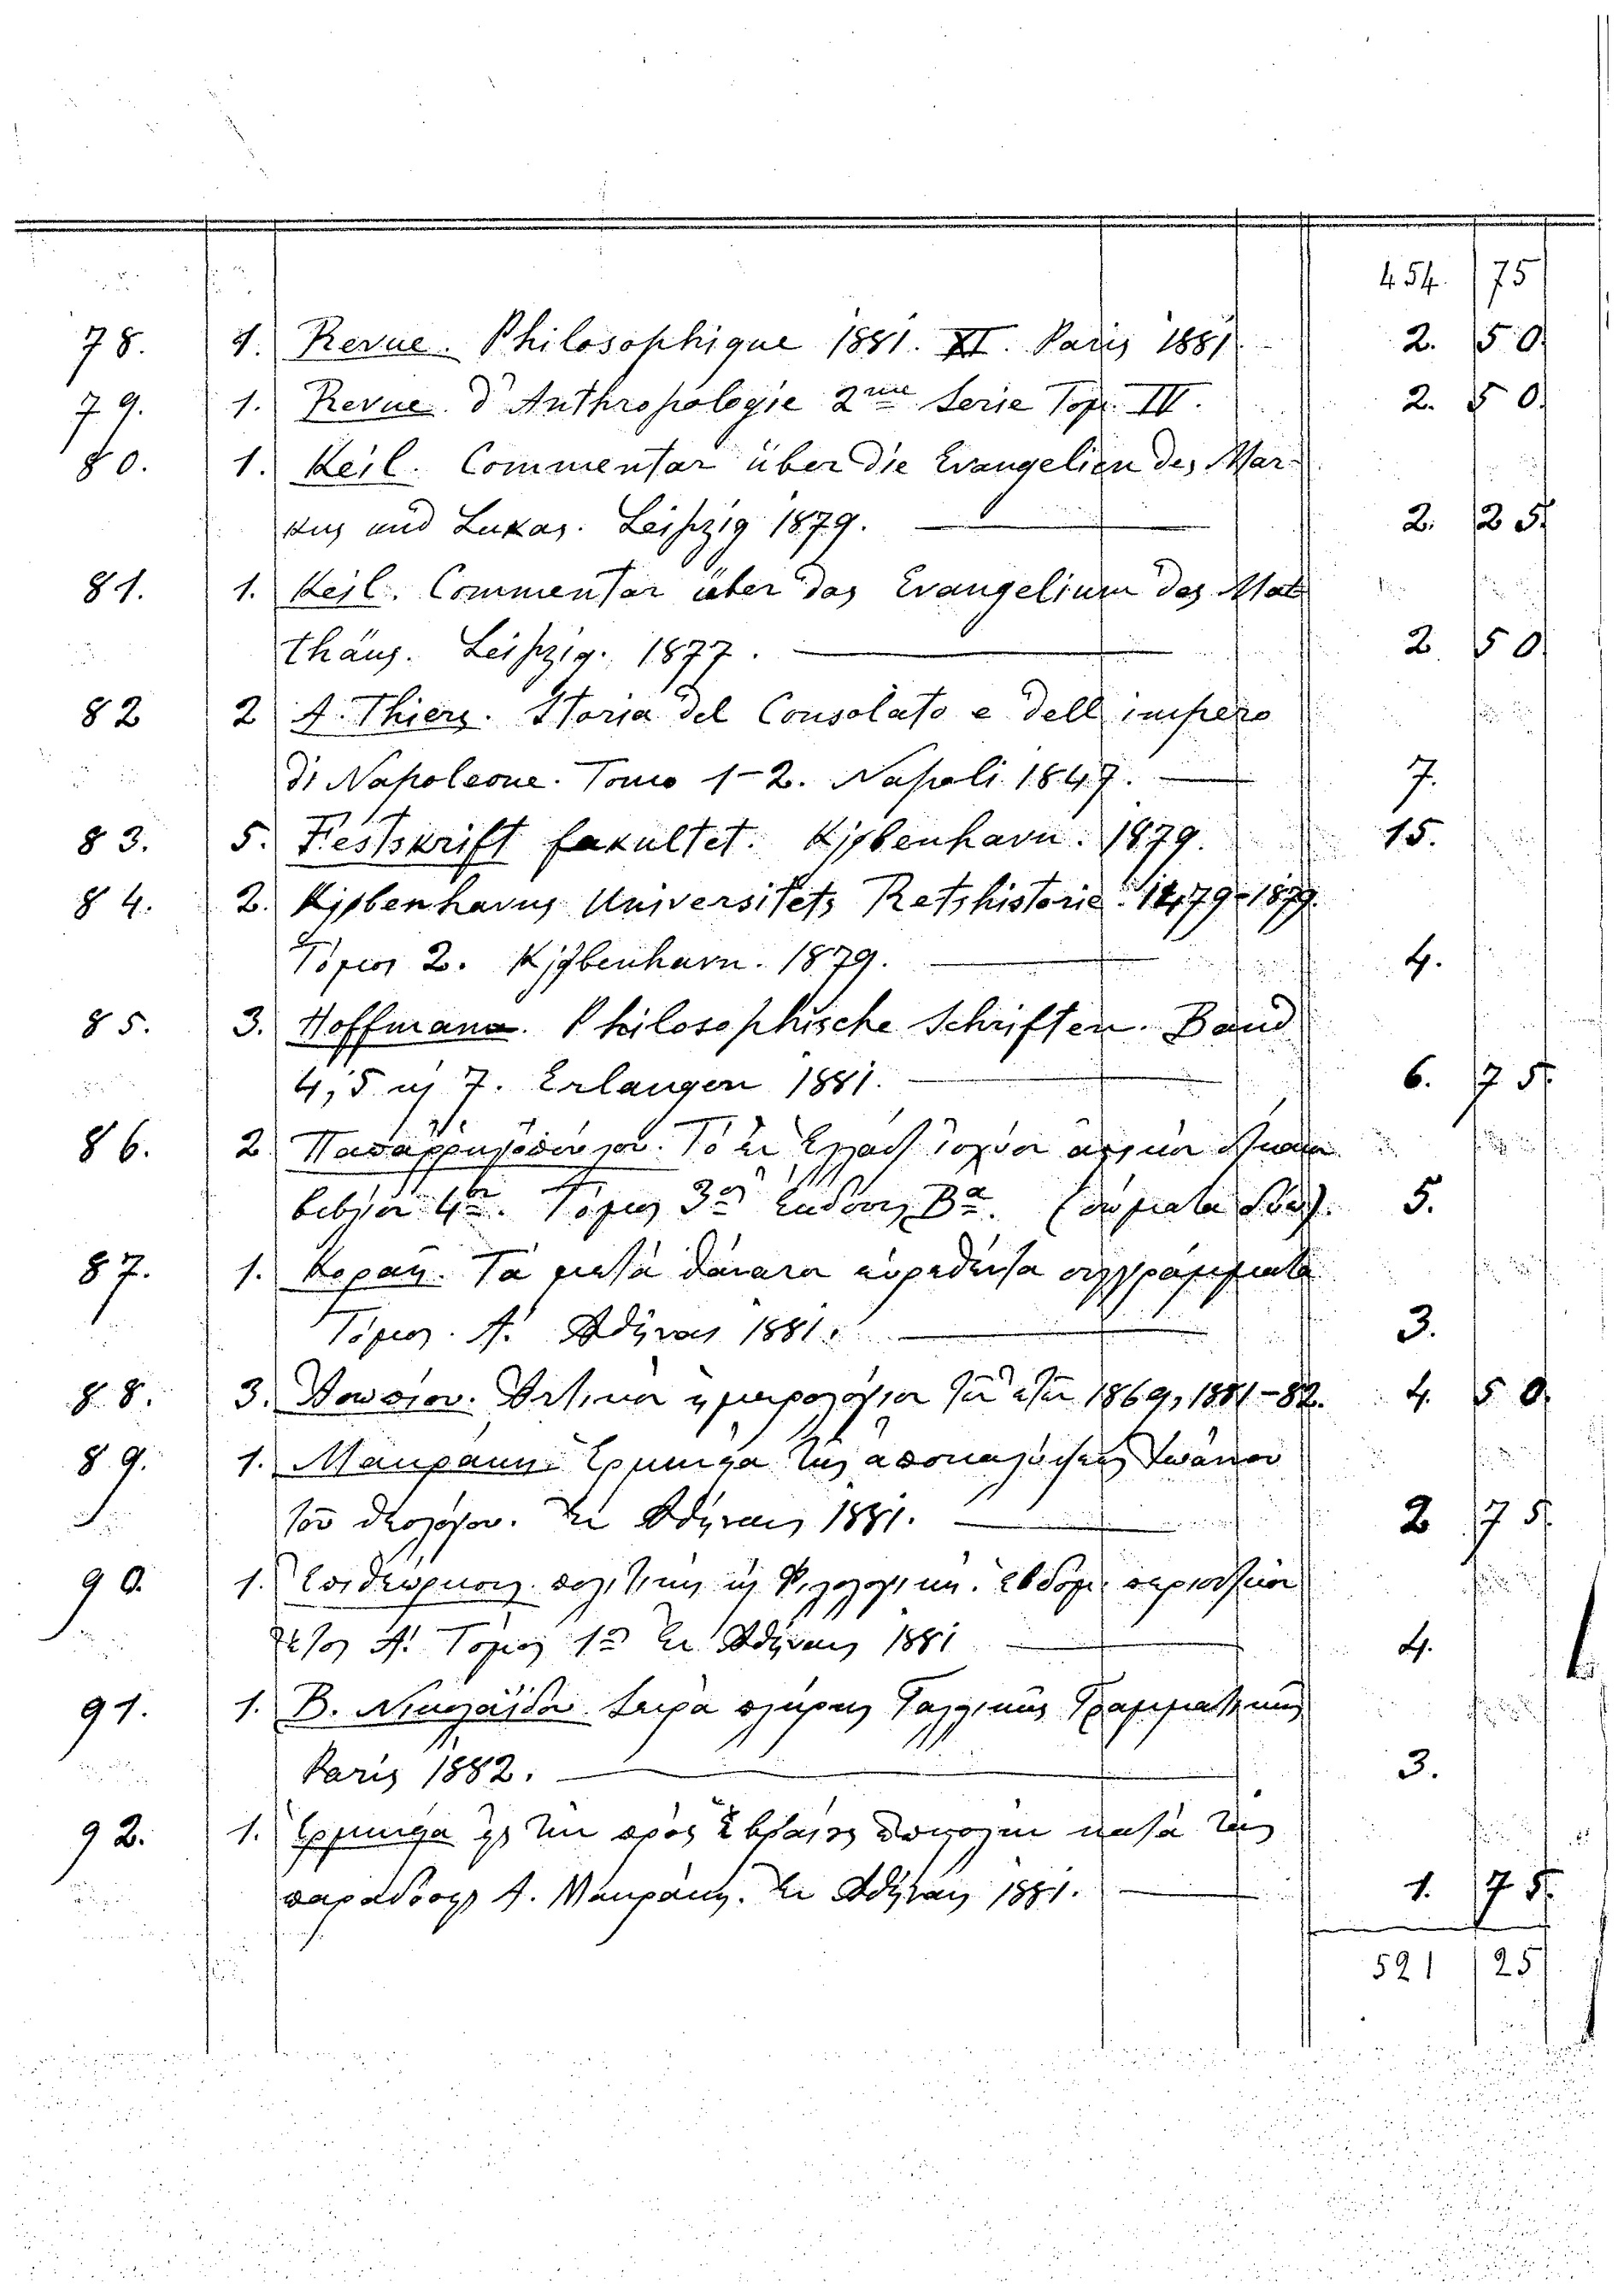 454. 75
78. 1. Revue. Philosophique 1881. XI. Paris 1881 2. 50.
79. 1. Revue. d'Anthropologie 2me Serie Τομ. IV. 2. 50.
80. 1. Keil. Commentar über die Evangelien des Mar-
kus und Lukas. Leipzig 1879. 2. 25.
81. 1. Keil. Commentar über das Evangelium des Mat
thäus. Leipzig. 1877. 2 50
82 2 A. Thiers. Storia del Consolato e dell impero
di Napoleone. Tomo 1-2. Napoli 1847. 7.
83. 5. Festskrift fakultet. Kjøbenhavn. 1879. 15.
84. 2. Kjøbenhavns Universitets Retshistorie. 1479-1879.
Τόμοι 2. Kjøbenhavn. 1879. 4.
85. 3. Hoffmann. Philosophische Schriften. Band
4, 5 ϗ 7. Erlangen 1881. 6. 75.
86. 2 Παπαρρηγοπούλου. Τὸ ἐν Ἑλλάδι ἰσχῦον ἀστικὸν δίκαιον
βιβλίον 4ον. Τόμος 3ος ἔκδοσις Βα. (σώματα δύο). 5.
87. 1. Κοραῆ. Τὰ μετὰ θάνατον εὑρεθέντα συγγράμματα
Τόμος. Α! Ἀθῆναι 1881. 3.
88. 3. Ἀσωπίου. Ἀττικὸν ἡμερολόγιον τῶν ἐτῶν 1869, 1881-82. 4. 50.
89. 1. Μακράκη. Ἑρμηνεία τῆς ἀποκαλύψεως Ἰωάννου
τοῦ θεολόγου. Ἐν Ἀθήναις 1881. 2 75.
90. 1. Ἐπιθεώρησις πολιτικὴ ϗ Φιλολογικὴ. ἑβδομ. περιοδικὸν
ἔτος Α! Τόμος 1ος Ἐν Ἀθήναις 1881 4.
91. 1. Β. Νικολαΐδου. Σειρὰ πλήρης Γαλλικῆς Γραμματικῆς
Paris 1882. 3.
92. 1. Ἑρμηνεία εἰς τὴν πρὸς Ἑβραίους ἐπιστολὴν κατὰ τὰς
παραδόσεις Α. Μακράκη. Ἐν Ἀθήναις 1881. 1. 75.
521 25